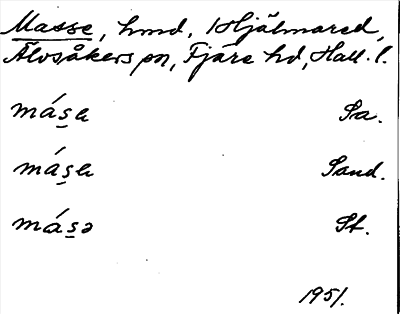 Masse, hmd, 1 Hjälmared,
Älvsåkers sn, Fjäre hd, Hall. l.
más̱a Sa.
más̱a Sand.
más̱ə St.
1951.